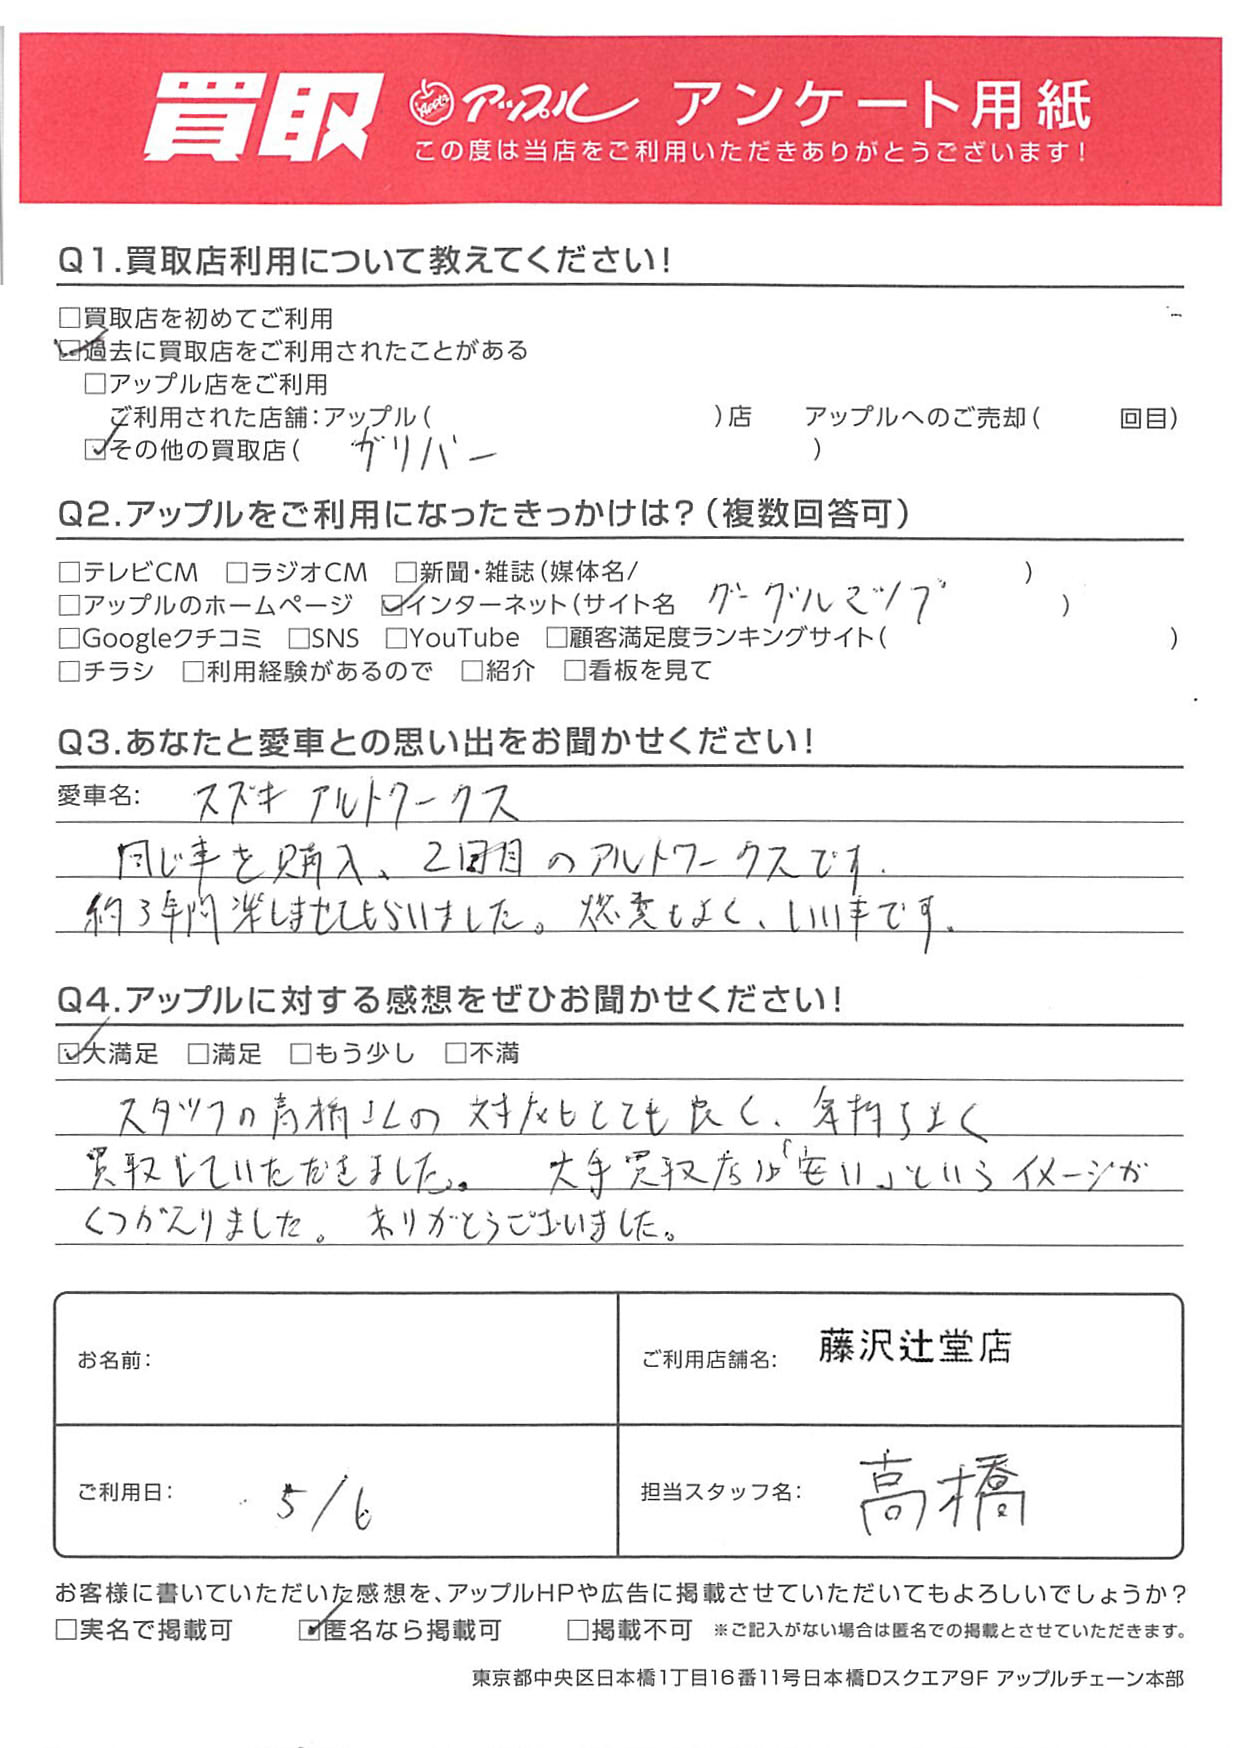 買取 アップル アンケート用紙
この度は当店をご利用いただきありがとうございます!
Q1.買取店利用について教えてください!
□買取店を初めてご利用
☑過去に買取店をご利用されたことがある
□アップル店をご利用
ご利用された店舗:アップル( )店 アップルへのご売却( 回目)
☑その他の買取店( ガリバー )
Q2.アップルをご利用になったきっかけは?(複数回答可)
□テレビCM □ラジオCM □新聞・雑誌(媒体名/ )
□アップルのホームページ ☑インターネット(サイト名 グーグルマップ )
□Googleクチコミ □SNS □YouTube □顧客満足度ランキングサイト( )
□チラシ □利用経験があるので □紹介 □看板を見て
Q3.あなたと愛車との思い出をお聞かせください!
愛車名: スズキ アルトワークス
同じ車を購入、2回目のアルトワークスです.
約3年間楽しませてもらいました。燃費もよく、いい車です.
Q4.アップルに対する感想をぜひお聞かせください!
☑大満足 □満足 □もう少し □不満
スタッフの高橋さんの対応もとても良く、気持ちよく
買取していただきました。 大手買取店は「安い」というイメージが
くつがえりました。ありがとうございました。
お名前: ご利用店舗名: 藤沢辻堂店
ご利用日: 5/6 担当スタッフ名: 高橋
お客様に書いていただいた感想を、アップルHPや広告に掲載させていただいてもよろしいでしょうか?
□実名で掲載可 ☑匿名なら掲載可 □掲載不可 ※ご記入がない場合は匿名での掲載とさせていただきます。
東京都中央区日本橋1丁目16番11号日本橋Dスクエア9F アップルチェーン本部